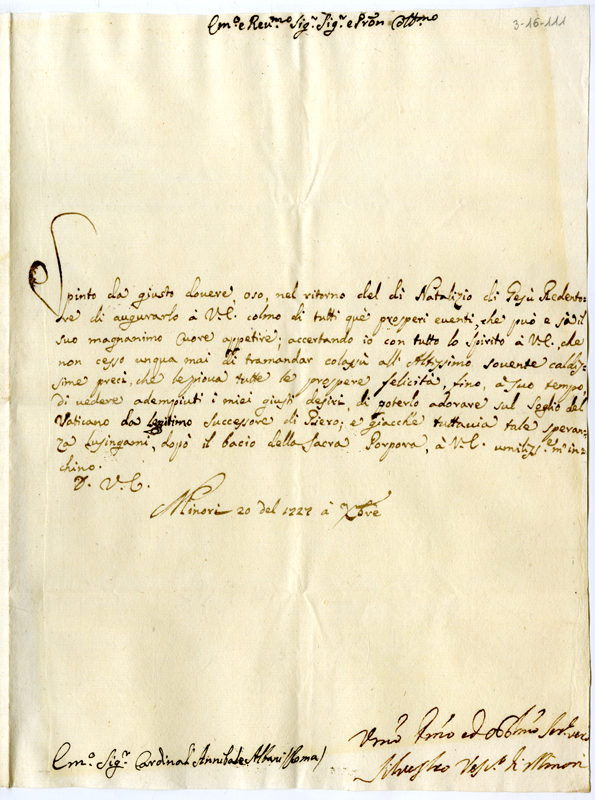 3-16-111
Em.º e Reu.mo Sig.r Sig.r e Pron Coll.mo
Spinto da giusto douere, oso, nel ritorno del dì Natalizio di Gesù Redento=
re di augurarlo à V.E. colmo di tutti què prosperi euenti, che può e sà il
suo magnanimo Cuore appetire; accertando io con tutto lo Spirito à V.E., che
non cesso unqua mai di tramandar colassù all'Altissimo souente caldis=
sime preci, che le pioua tutte le prospere felicità, fino, à suo tempo,
di vedere adempiuti i miei giusti desirj, di poterlo adorare sul Seglio del
Vaticano da legitimo successore di Piero; e giacche tuttauia tale speran=
za lusingami, dopò il bacio della Sacra Porpora, à V.E. umiliss.e m'in=
chino.
D. V.E.
Minori 20 del 1727 à Xbre
Vmo ed Obb.mo Seru.
Siluestro Vesc.o di Minori
Em.º Sig.r Cardinal Annibale Albani (Roma)